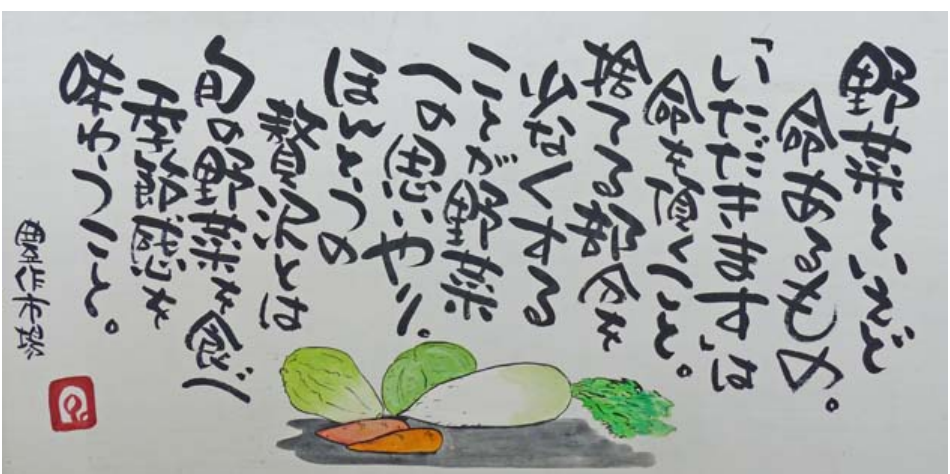 野菜といえど
命あるもの。
「いただきます」は
命を頂くこと。
捨てる部分を
少なくする
ことが野菜
への思いやり。
ほんとうの
贅沢とは
旬の野菜を食べ
季節感を
味わうこと。
豊作市場